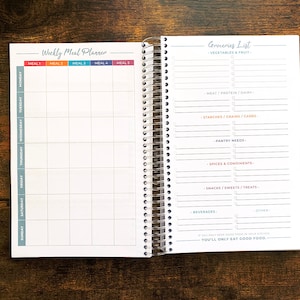 Weekly Meal Planner
MEAL 1 MEAL 2 MEAL 3 MEAL 4 MEAL 5
MONDAY
TUESDAY
WEDNESDAY
THURSDAY
FRIDAY
SATURDAY
SUNDAY
Groceries List
VEGETABLES & FRUIT
MEAT / PROTEIN / DAIRY
STARCHES / GRAINS / CARBS
PANTRY NEEDS
SPICES & COMPONENTS
SNACKS / SWEETS / TREATS
BEVERAGES OTHER
IF YOU ONLY HAVE GOOD FOOD IN YOUR HOUSE,
YOU'LL ONLY EAT GOOD FOOD.